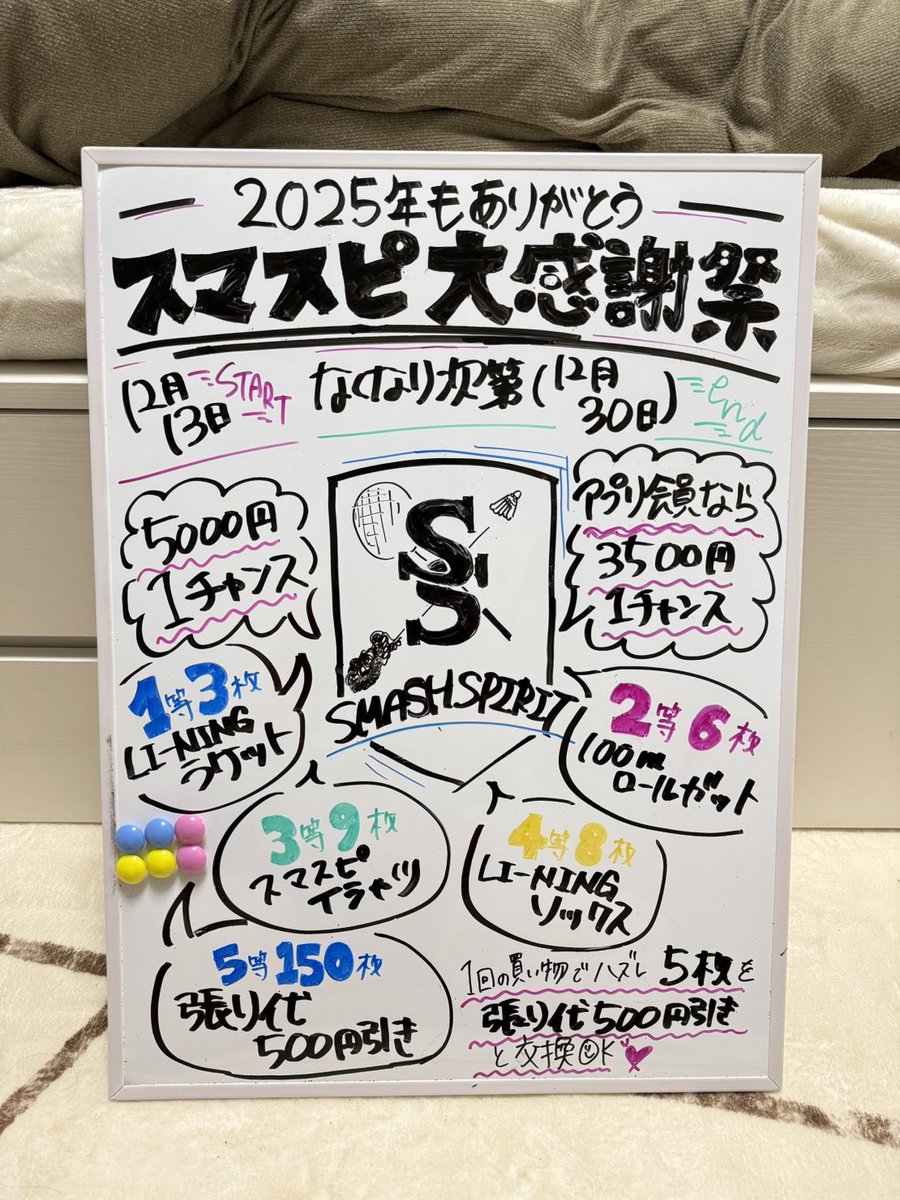 2025年もありがとう
スマスピ大感謝祭
12月13日 START なくなり次第(12月30日) end
5000円
1チャンス
アプリ会員なら
3500円
1チャンス
SS
SMASH SPIRIT
1等3枚
LI-NING
ラケット
2等6枚
100m
ロールガット
3等9枚
スマスピ
Tシャツ
4等8枚
LI-NING
ソックス
5等150枚
張り代
500円引き
1回の買い物でハズレ5枚を
張り代500円引き
と交換OK